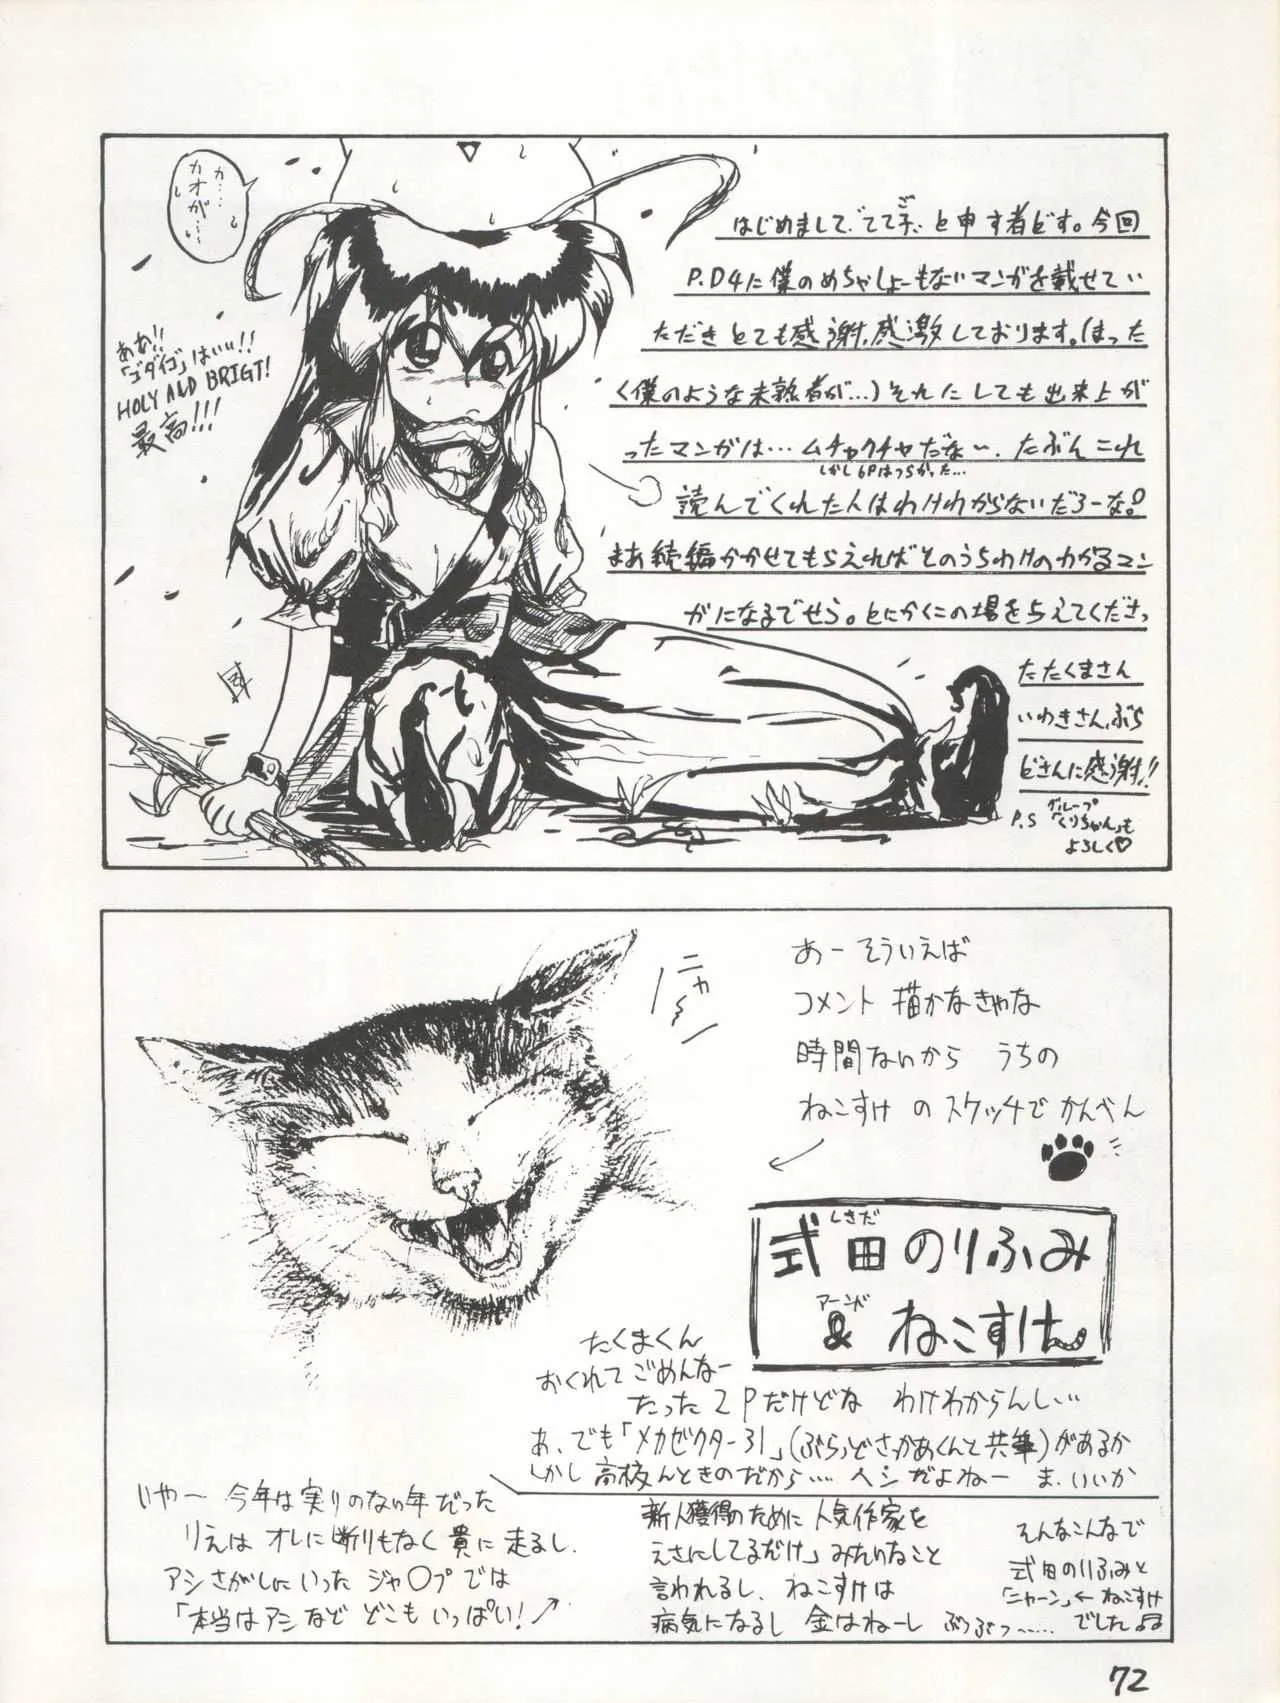 カ…
カオが…
ああ!!
「ゴダイゴ」はいい!!
HOLY AND BRIGT!
最高!!!
はじめまして、てて子ご と申す者どす。今回
P.D4に僕のめちゃしょーもないマンガを載せてい
ただきとても感謝、感激しております。(まった
く僕のような未熟者が…)それにしても出来上が
ったマンガは…ムチャクチャだな〜、たぶんこれ
しかし6Pはつらかった…
読んでくれた人はわけわからないだろーな。
まあ続編かかせてもらえればそのうちわけのわかるマン
がになるでせう。とにかくこの場を与えてくださっ
たたくまさん
いわきさん、ぶら
どさんに感謝!!
P.S グループ
「くりちゃん」も
よろしく♡
ニャ〜ン
あー そういえば
コメント 描かなきゃな
時間ないから うちの
ねこすけ のスケッチで かんべん
しきだ
式田のりふみ
アーンド
& ねこすけ
たくまくん
おくれて ごめんなー
たった 2Pだけどな わけわからんし…
あ、でも「メカゼクター31」(ぶらっどさっかあくんと共筆)があるか
しかし 高校んときのだから…… ヘシだよねー ま、いいか
いやー 今年は実りのない年だった
りえは オレに断りもなく 貴に 走るし、
アシさがしにいった ジャ○プでは
「本当はアシなど どこも いっぱい!
新人獲得のために 人気作家を
えさにしてるだけ」みたいなこと
言われるし、ねこすけは
病気になるし 金はねーし ぶつぶつ〜……
そんなこんなで
式田のりふみと
「ニャーン」← ねこすけ
でした♫
72